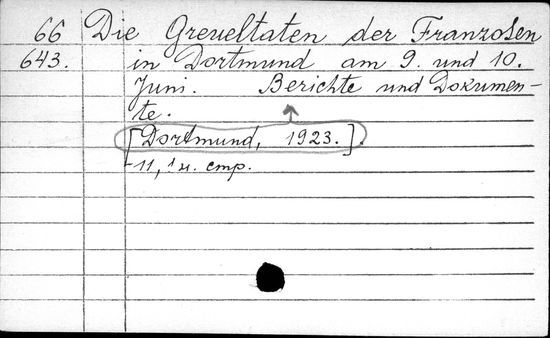 66 Die Greueltaten der Franzosen
643. in Dortmund am 9. und 10.
Juni. Berichte und Dokumen-
te.
[Dortmund, 1923.]
11, 1 н. стр.